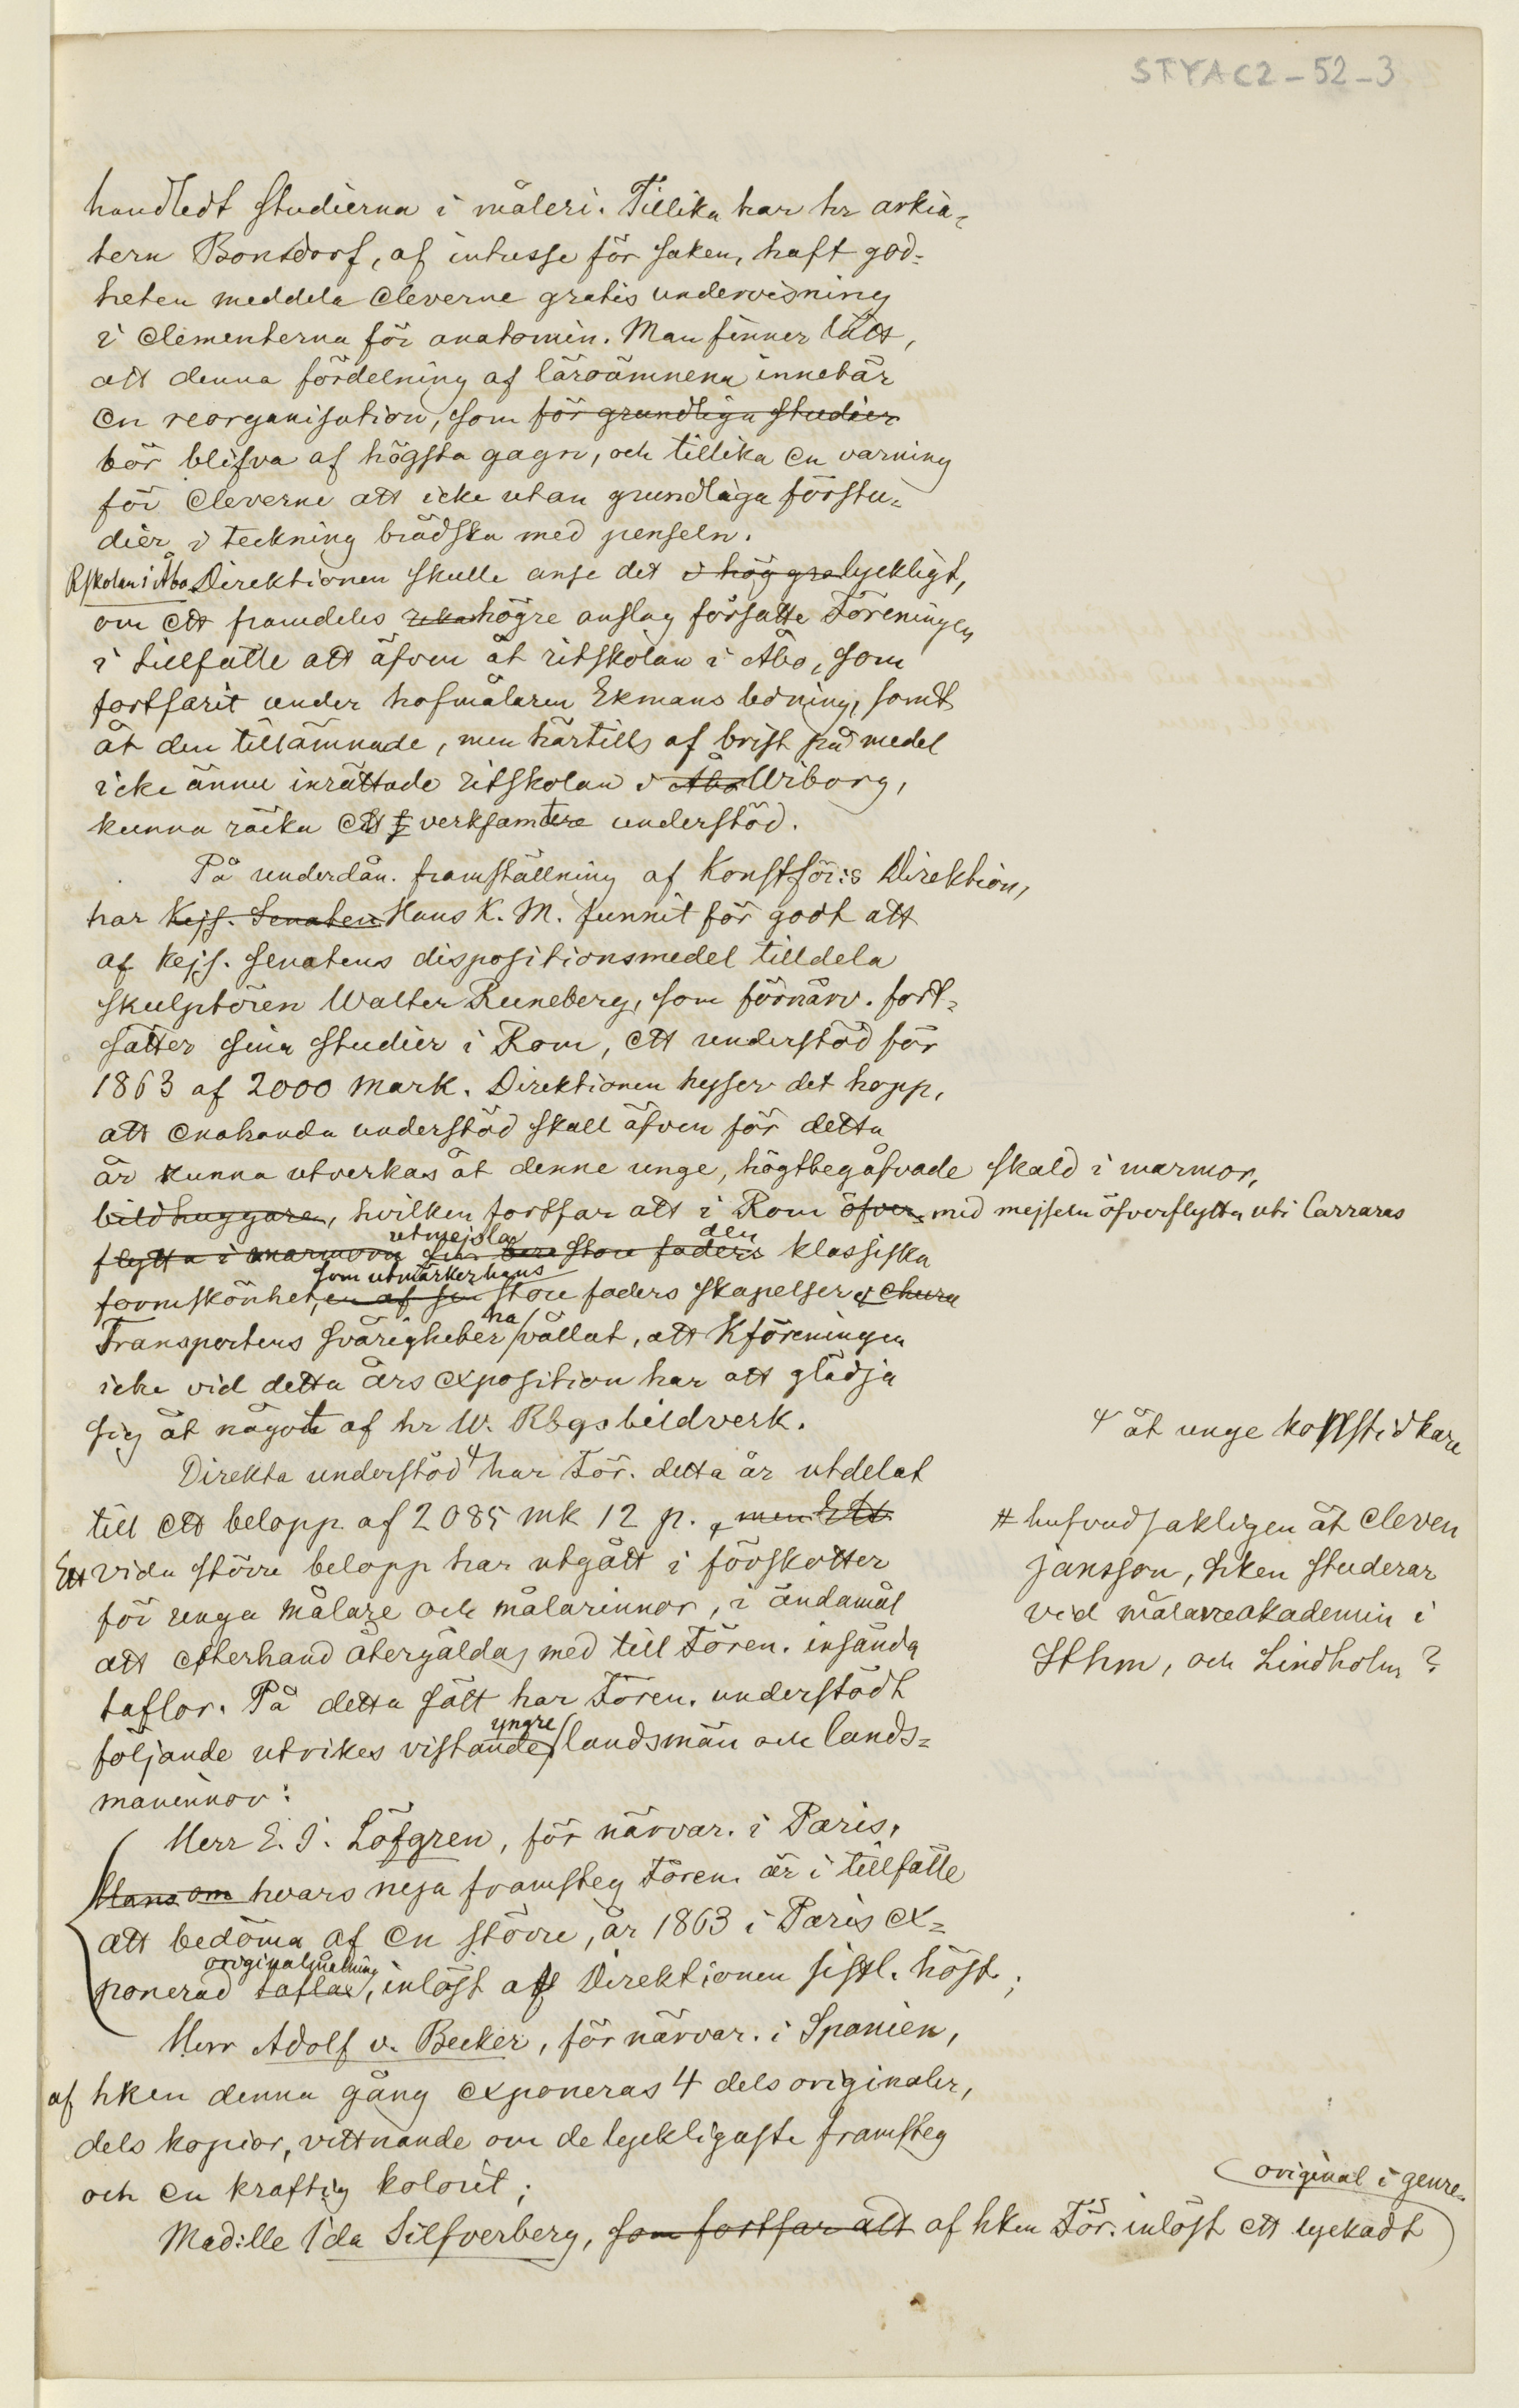 STYAC2-52-3
handledt studierna i måleri. Tillika har hr arkia-
tern Bonsdorf, af intresse för saken, haft god-
heten meddela eleverne gratis undervisning
i elementerna för anatomin. Man finner lätt,
att denna fördelning af läroämnena innebär
en reorganisation, som för grundliga studier
bör blifva af högsta gagn, och tillika en varning
för eleverne att icke utan grundliga förstu-
dier i teckning brådska med penseln.
Rskolan i Åbo Direktionen skulle anse det i hög gra lyckligt,
om ett framdeles högre anslag försatte Föreningen
i tillfälle att äfven åt ritskolan i Åbo, som
fortfarit under hofmålaren Ekmans ledning, samt
åt den tillämnade, men härtills af brist på medel
icke ännu inrättade ritskolan i Åbo Wiborg,
kunna räcka ett verksamtare understöd.
På underdån. framställning af Konstför:s Direktion,
har Kejs. Senaten Hans K. M. funnit för godt att
af kejs. senatens dispositionsmedel tilldela
skulptören Walter Runeberg, som förnärv. fort-
sätter sina studier i Rom, ett understöd för
1863 af 2000 mark. Direktionen hyser det hopp,
att enahanda understöd skall äfven för detta
år kunna utverkas åt denne unge, högtbegåfvade skald i marmor,
bildhuggare, hvilken fortfar att i Rom öfver- med mejseln öfverflytta uti Carraras
utmejsla den
flytta i marmorn sin store faders klassiska
som utmärker hans
formskönhet, en af sin store faders skapelser. ehuru
ha
Transportens svårigheter vållat, att Kföreningen
icke vid detta års exposition har att glädja
sig åt något af hr W. Rbgs bildverk.
åt unge konstidkare
Direkta understöd har För. detta år utdelat
till ett belopp af 2085 mk 12 p. men Ett
# hufvudsakligen åt eleven
Jansson, hken studerar
vid målareakademin i
Sthm, och Lindholm ?
Ett vida större belopp har utgått i förskotter
för unga målare och målarinnor, i ändamål
att efterhand återgäldas med till Fören. insända
taflor. På detta sätt har Fören. understödt
yngre
följande utrikes vistande landsmän och lands-
maninnor:
Herr E. J. Löfgren, för närvar. i Paris,
Hans om hvars nya framsteg Fören. är i tillfälle
att bedöma af en större, år 1863 i Paris ex-
originalmålning
ponerad taflas, inlöst af Direktionen sistl. höst;
Herr Adolf v. Becker, för närvar. i Spanien,
af hken denna gång exponeras 4 dels originaler,
dels kopior, vittnande om de lyckligaste framsteg
och en kraftig kolorit;
original i genre.
Mad:lle Ida Silfverberg, som fortfar att af hken För:s inlöst ett lyckadt